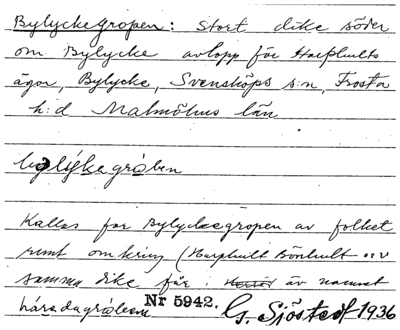 Bylyckegropen: Stort dike söder
om Bylycke avlopp för Harphults
ägor, Bylycke, Svensköps s:n, Frosta
h:d Malmöhus län
Kallas for Bylyckegropen av folket
runt omkring (Harphult Bönhult
samma dike får i även namnet
häradagråben Nr 5942. G. Sjöstedt 1936